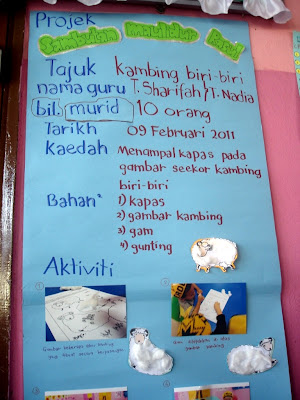 Projek
Sambutan Maulidur Rasul
Tajuk kambing biri-biri
nama guru T. Sharifah / T. Nadia
bil. murid 10 orang
Tarikh 09 Februari 2011
Kaedah Menampal kapas pada
gambar seekor kambing
biri-biri
Bahan² 1) kapas
2) gambar kambing
3) gam
4) gunting
Aktiviti